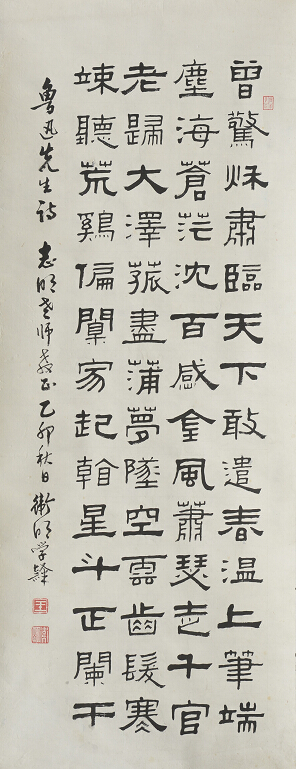 曾驚秌肅臨天下敢遣春温上筆端
塵海蒼茫沈百感金風蕭瑟走千官
老歸大澤菰盡蒲夢墜空雲齒髮寒
竦聽荒鷄偏闃寂起看星斗正闌干
魯迅先生詩 志明老师教正 乙卯秋日 衛明学隸